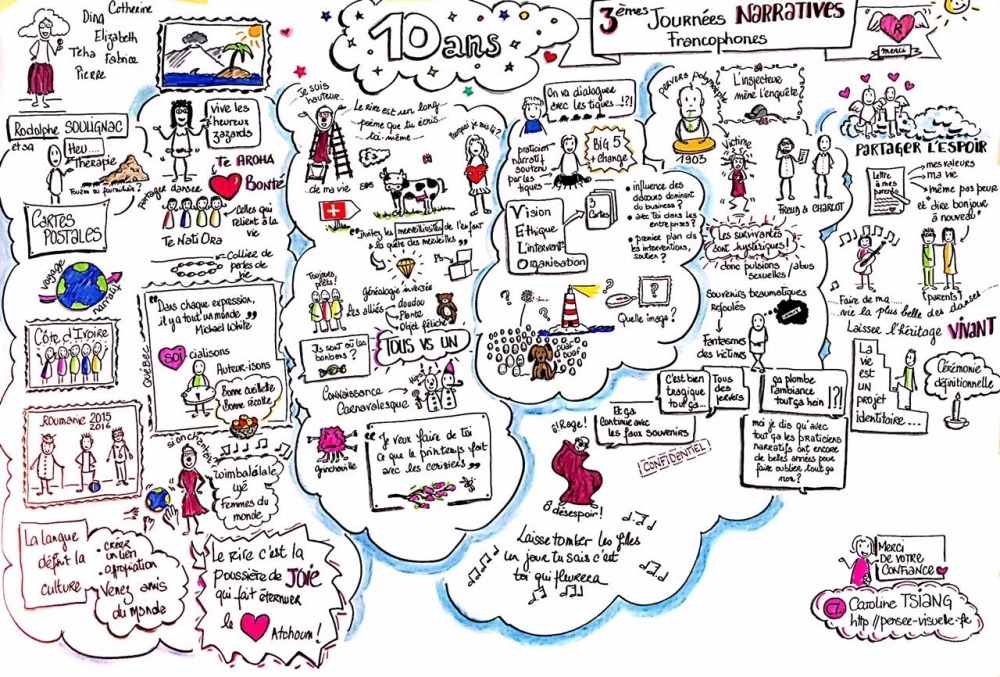 10 ans
3èmes Journées NARRATIVES
Francophones
R
merci
Dina Catherine
Elizabeth
Tcha Fabrice
Pierre
Rodolphe SOULIGNAC
et sa
Heu....
Thérapie
CARTES
POSTALES
voyage
narratif
Côte d'Ivoire
ROUMANIE 2015
2016
La langue
définit la
culture
créer
un lien
appropriation
Venez amis
du monde
vive les
heureux
zazards
Te AROHA
Bonté
partagée dansée
Celles qui
relient à la
vie
Te Nati Ora
Collier de
perles de
vie
"Dans chaque expression,
il y a tout un monde"
Michael White
QUÉBEC
SOI cialisons
Auteur-isons
Bonne cueillette
Bonne récolte
si on chantait
Womballalale
yé
Femmes du
monde
Le Rire c'est la
poussière de JOIE
qui fait éternuer
le
Atchoum!
Je suis
hauteur..
..de ma vie
Le rire est un long
poème que tu écris...
toi même...
Bonjour je suis ?
"Invitez les merveillosités de l'enfant
à la quête des merveilles"
Toujours
être
prêts!
Généalogie inversée
les alliés
doudou
Plante
Objet fétiche
Ils sont où les
bonbons ?
TOUS VS UN
Connaissance
Carnavalesque
Grincheville
"Je veux faire de toi
Ce que le printemps fait
avec les cerisiers"
On va dialoguer
avec les tiques..!?!
praticien
narratif
soutenu
par les
tiques
BIG 5
+ change
Vision
Ethique
L'intervent°
Organisation
3
Cartes
• influence des
discours dominant
du business ?
• avec toi dans les
entreprises ?
• premier plan ds
les interventions,
soutien ?
Quelle image ?
ouaf
ouaf
PERVERS POLYMORPHE
1903
L'inspecteur
mène l'enquête
Victime
FREUD & CHARCOT
Les survivantes
sont hystériques !
donc pulsions
sexuelles / abus
Souvenirs traumatiques
refoulés
Fantasmes
des victimes
C'est bien
tragique
tout ça...
Tous
des
pervers
ça plombe
l'ambiance
tout ça hein !
!?!
Et ça
continue avec
les faux souvenirs
CONFIDENTIEL
moi je dis qu'avec
tout ça les praticiens
narratifs ont encore
de belles années pour
faire oublier tout ça
non?
O Rage!
O désespoir!
Laisse tomber les filles
un jour tu sais c'est
toi qui pleurera
PARTAGER L'ESPOIR
Lettre
à mes
parents
mes valeurs
ma vie
même pas peur
et dire bonjour
à nouveau
(parents)
Faire de ma....
vie la plus belle des danses
Laissez l'héritage VIVANT
La
vie
est
un
projet
identitaire...
Cérémonie
définitionnelle
Merci
DE VOTRE
CONFIANCE
Caroline TSIANG
http://pensee-visuelle.fr